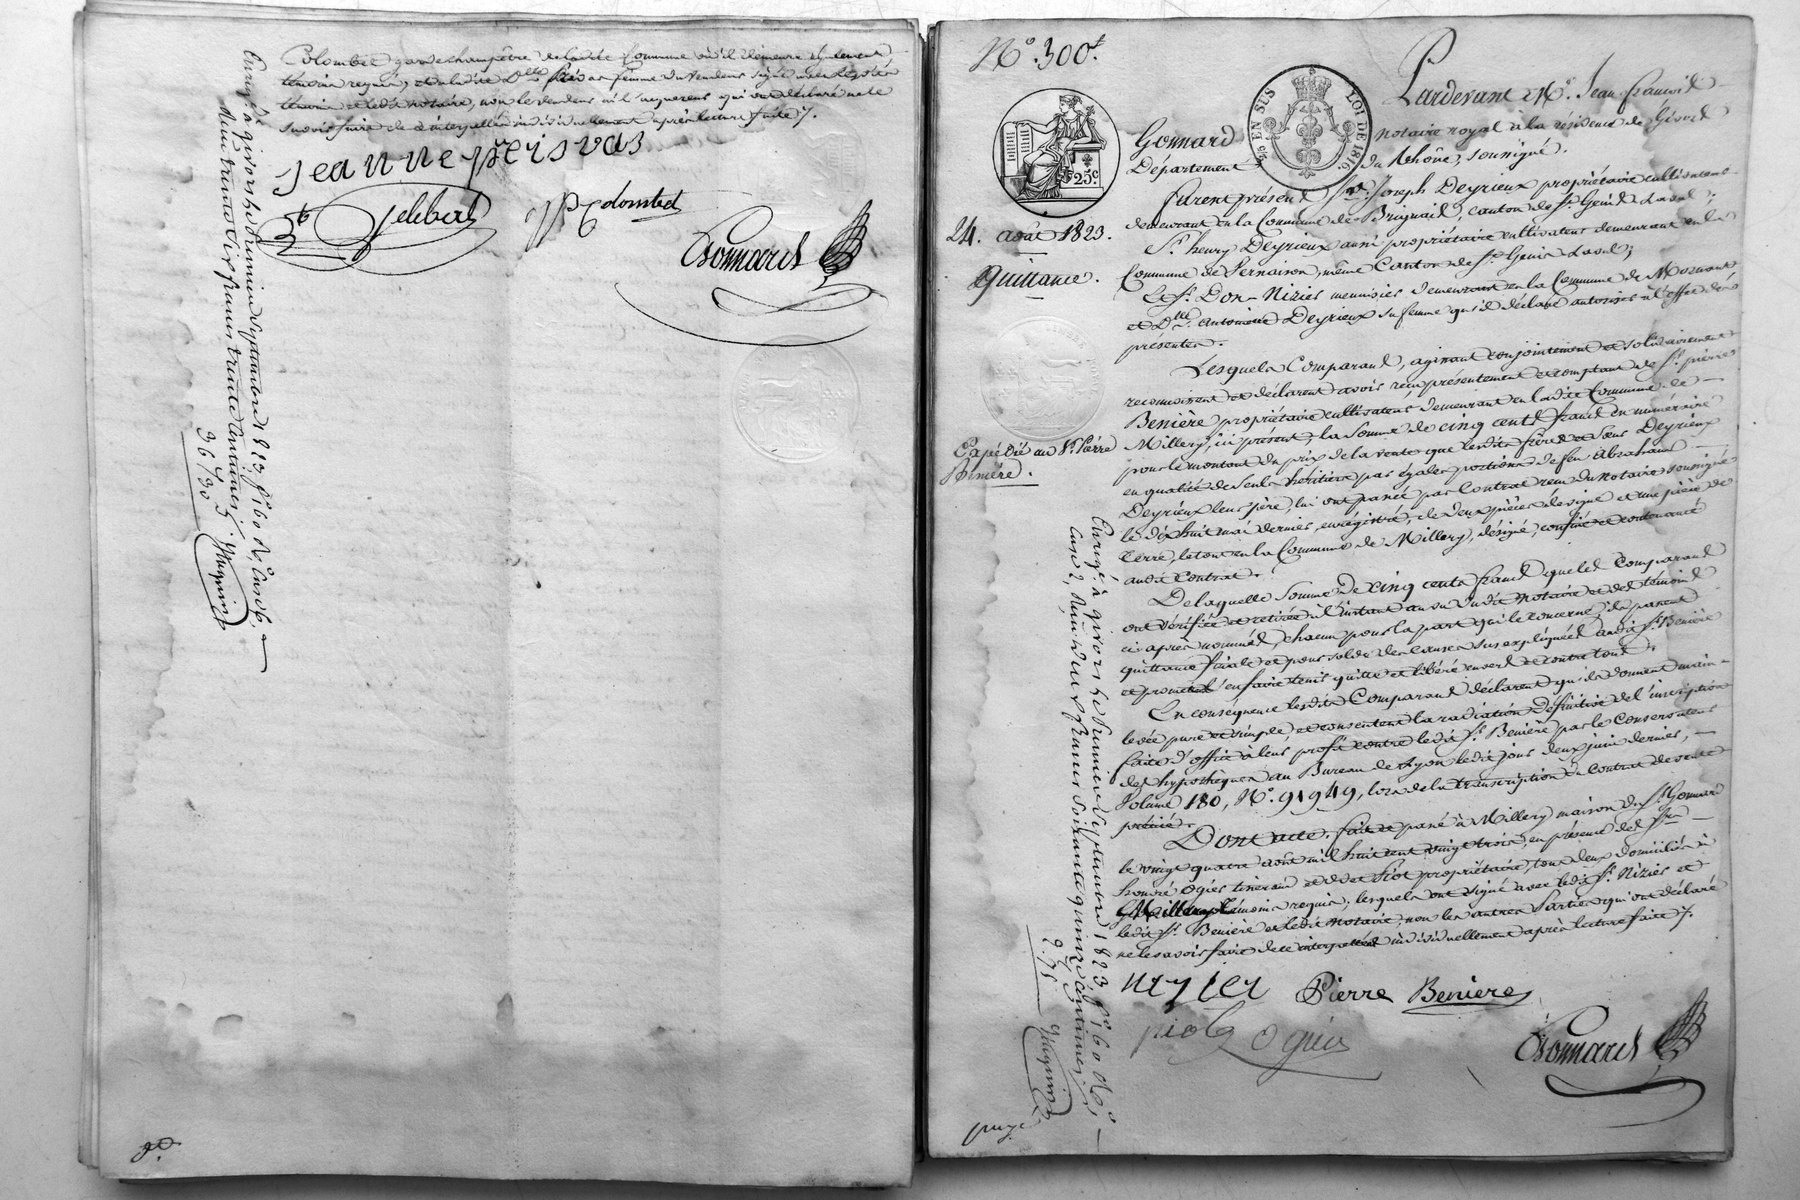 Colombet garde champêtre de ladite Commune où il demeure également
témoin requis, et ladite D.lle femme du vendeur signé avec les dits
témoin et ledit notaire, non le vendeur ni l'acquereur qui ont déclaré ne le
savoir faire de ce interpellés individuellement après lecture faite ./.
Jeanne preisvas
Colombet
Gonnard
Enreg.é à givors le premier Septembre 1823, f.o 160 v.o Case 6,
Reçu trente dix francs trente centimes
N.o 300.
EN SUS
LOI DE 1816
25c
24. août 1823.
Quittance.
Expédié au S.r Pierre
Benière.
Pardevant M.e Jean François
Gonnard notaire royal à la résidence de Givors
Département du Rhône, soussigné.
Furent présens S.r Joseph Deyrieux propriétaire cultivateur
demeurant en la Commune de Brignais, canton de S.t Genis Laval;
S.r henry Deyrieux aussi propriétaire cultivateur demeurant en la
Commune de Vernaison, même Canton de S.t Genis Laval;
Le S.r Don Nizier menuisier demeurant en la Commune de Mornant,
et D.lle Antoinette Deyrieux sa femme qu'il déclare autoriser à l'effet des
présentes.
Lesquels Comparans, agissant conjointement et solidairement
reconnaissent et déclarent avoir reçu présentement et comptant de S.r pierre
Benière propriétaire cultivateur demeurant en ladite Commune de
Millery, ici présent, la somme de cinq cents francs en numéraire
pour le montant du prix de la vente que lesdits frères et sœur Deyrieux
en qualité de seuls héritiers par égales portions de feu Abraham
Deyrieux leur père, lui ont passée par Contrat reçu du notaire soussigné
le dix huit mai dernier, enrégistré, de deux pièces de vigne et une pièce de
terre, le tout en la Commune de Millery, désigné, confiné et contenancé
audit Contrat.
De laquelle somme de cinq cents francs que les Comparans
ont vérifiée et retirée à l'instant au vu dudit notaire et des témoins
ci-après nommés, chacun pour la part qui le concerne, ils passent
quittance finale et pour solde des causes sus expliquées audit S.r Benière
et promettent l'en faire tenir quitte et libéré envers et contre tous.
En conséquence lesdits Comparans déclarent qu'ils donnent main-
levée pure et simple, et consentent la radiation définitive de l'inscription
faite d'office à leur profit contre ledit S.r Benière par le Conservateur
des hypothèques au Bureau de Lyon le dit jour deux juin dernier,
Volume 180, N.o 91949, lors de la transcription du Contrat de vente
précité.
Dont acte, fait et passé à Millery maison du S.r Gonnard
le vingt quatre août mil huit cent vingt trois, en présence des S.rs
honoré Ogier et Piot propriétaire, tous deux domiciliés à
Millery témoins requis; lesquels ont signé avec ledit S.r Nizier et
ledit S.r Benière et ledit notaire, non les autres Parties qui ont déclaré
ne le savoir faire de ce interpellés individuellement après lecture faite ./.
nizier
Pierre Beniere
piot
ogier
Gonnard
Enreg.é à givors le premier Septembre 1823, f.o 160 v.o
Case 2, Reçu deux francs soixante quinze centimes
2.75